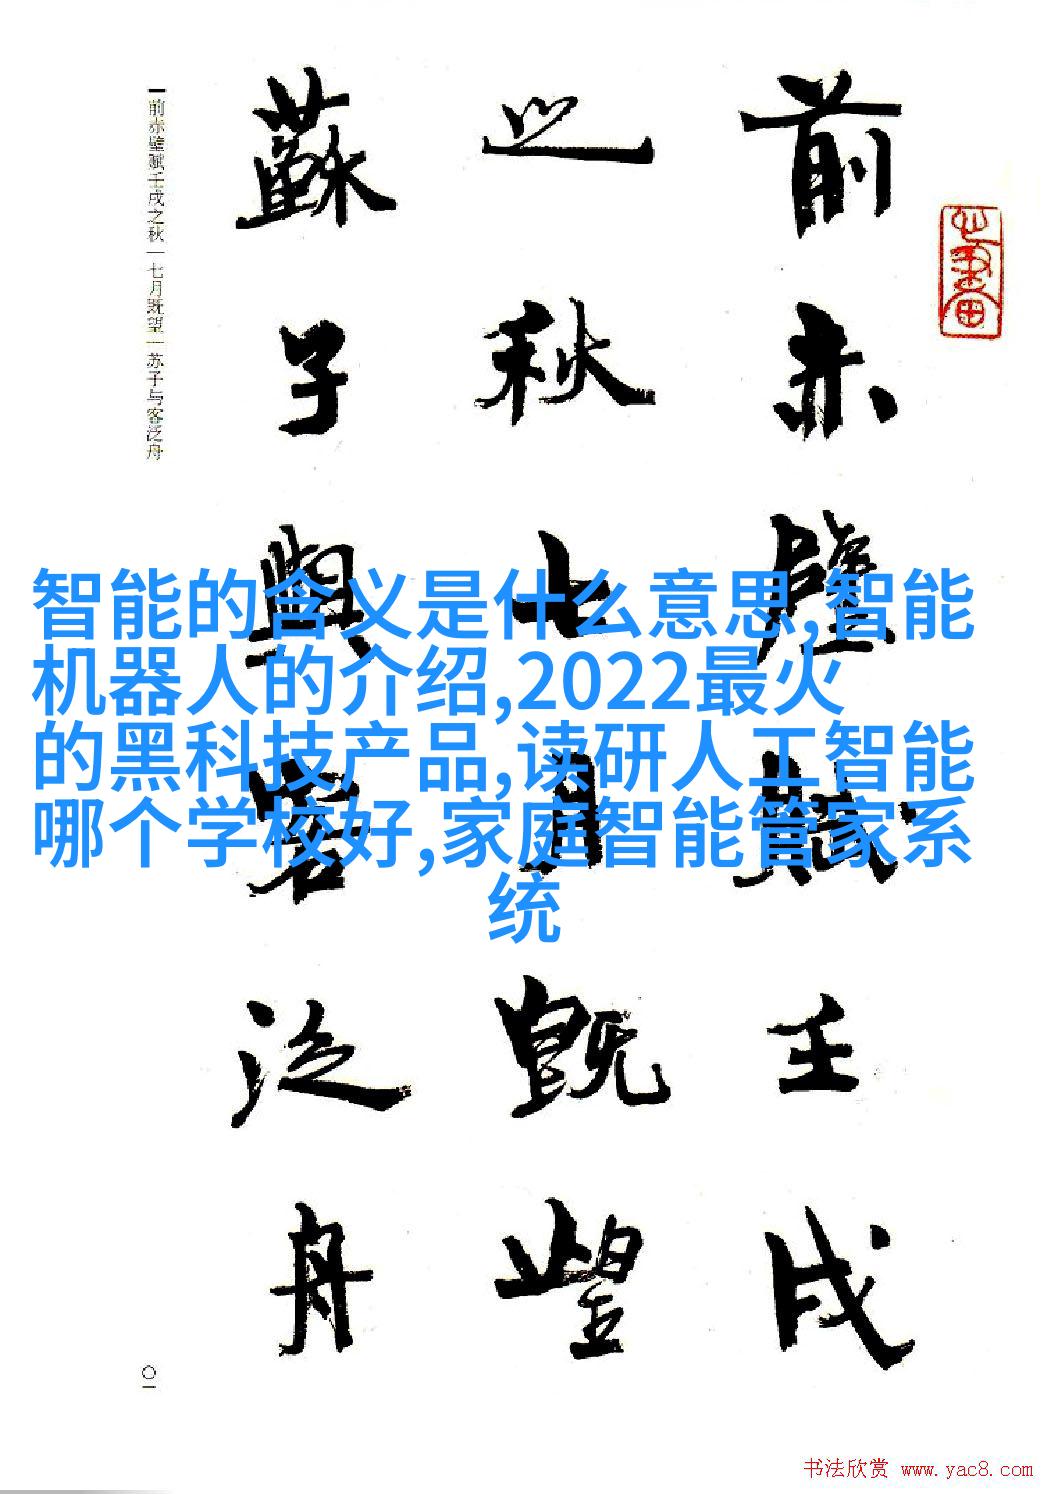 前赤壁賦壬戌
之秋七月既望
蘇子與客泛舟
前赤壁赋壬戌之秋|七月既望|苏子与客泛舟
〇一
智能的含义是什么意思,智能
机器人的介绍,2022最火
的黑科技产品,读研人工智能
哪个学校好,家庭智能管家系
统
书法欣赏 www.yac8.com